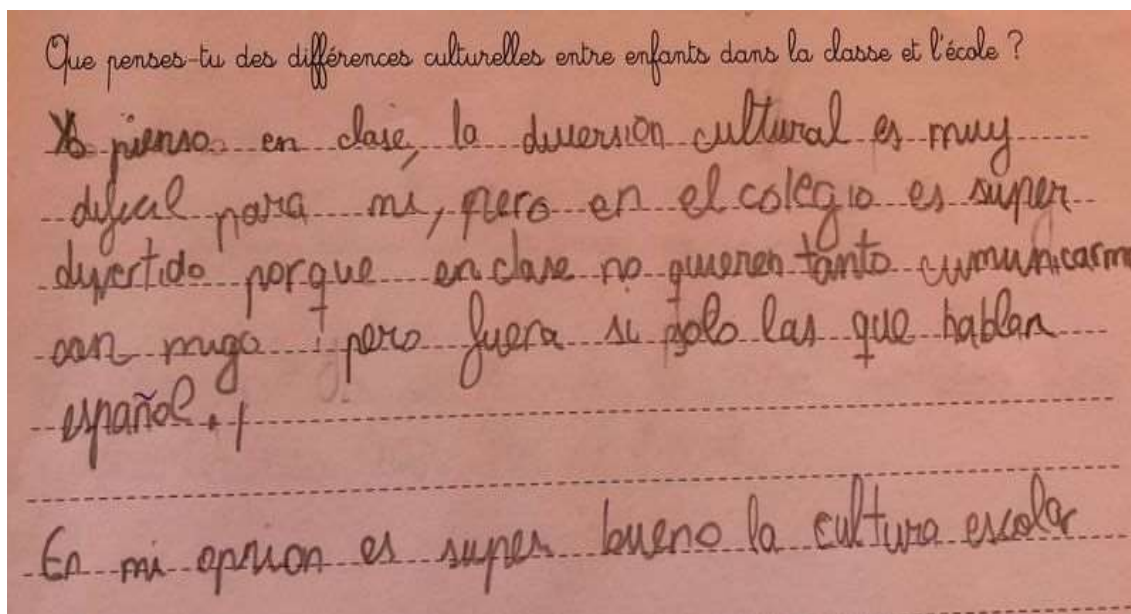 Que penses-tu des différences culturelles entre enfants dans la classe et l'école ?
Yo pienso en clase, la diversion cultural es muy
dificil para mi, pero en el colegio es super
divertido porque en clase no quieren tanto cumunicarm
con migo pero fuera si solo las que hablan
español.
En mi opnion es super bueno la cultura escolar